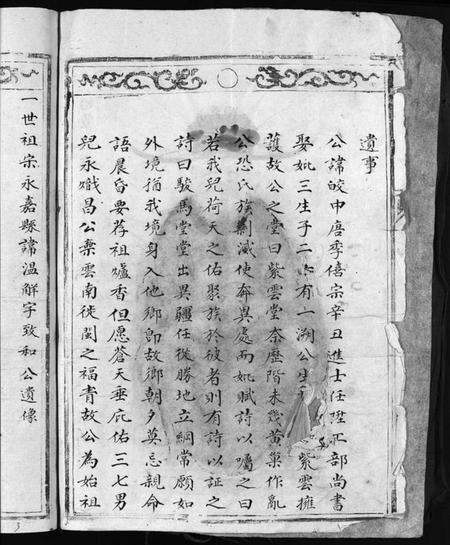 遺事
公諱皎中唐季僖宗辛丑進士任陞工部尚書
娶妣三生子二十有一溯公生 紫雲擁
護故公之堂曰紫雲堂奈歷階未幾黃巢作亂
公恐氏族剿滅使奔異處而妣賦詩以囑之曰
若我兒荷天之佑聚族於彼者則有詩以証之
詩曰駿馬堂堂出異疆任從勝地立綱常願如
外境猶我境身入他鄉即故鄉朝夕莫忘親命
語晨昏要荐祖爐香但愿蒼天垂庇佑三七男
兒永熾昌公棄雲南徙閩之福青故公為始祖
一世祖宗永嘉縣諱溫解字致和公遺像
3